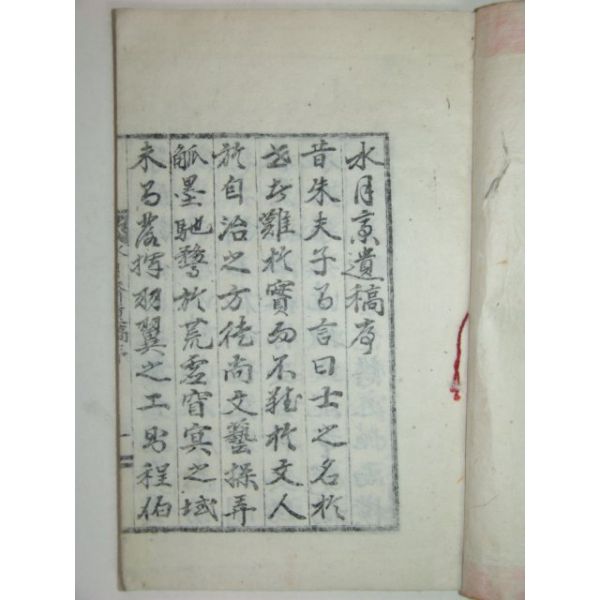 水月亭遺稿序
昔朱夫子有言曰士之名於
世者難於實而不難於文人
於自治之方徒尚文藝操弄
觚墨馳騖於荒虛窅冥之域
未有發揮羽翼之工與程伯